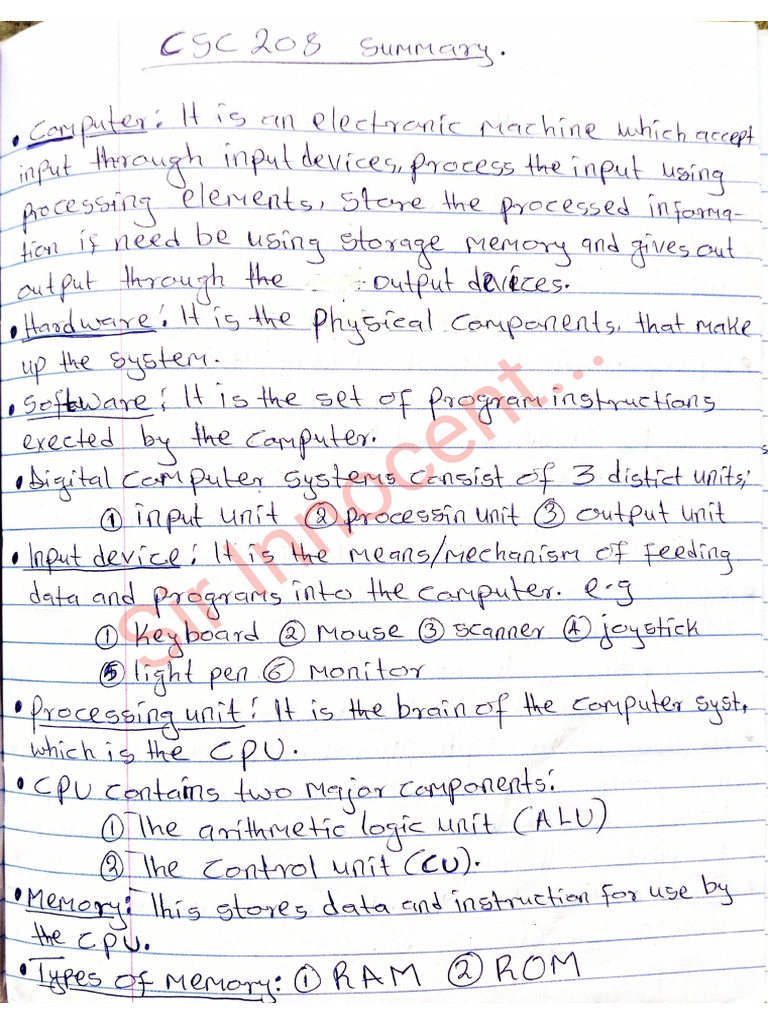 CSC 208 Summary.
• Computer: It is an electronic Machine which accept
input through input devices, process the input using
processing elements, store the processed informa-
tion if need be using storage memory and gives out
output through the output devices.
• Hardware: It is the physical components, that make
up the system.
• Software: It is the set of program instructions
exected by the computer.
• Digital computer systems consist of 3 distict units;
① input unit ② processin unit ③ output unit
• Input device: It is the means/mechanism of feeding
data and programs into the computer. e.g
① Keyboard ② Mouse ③ scanner ④ joystick
⑤ light pen ⑥ monitor
• Processing unit: It is the brain of the computer syst,
which is the CPU.
• CPU contains two major components:
① The arithmetic logic unit (ALU)
② The control unit (CU).
• Memory: This stores data and instruction for use by
the CPU.
• Types of memory: ① RAM ② ROM
Sir Innocent...